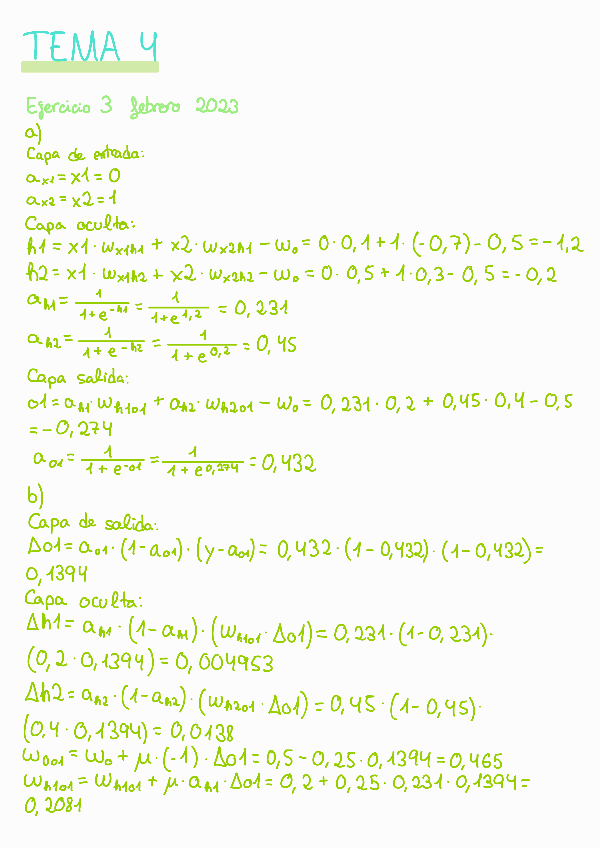 TEMA 4
Ejercicio 3 febrero 2023
a)
Capa de entrada:
ax1 = x1 = 0
ax2 = x2 = 1
Capa oculta:
h1 = x1 · wx1h1 + x2 · wx2h1 - w0 = 0 · 0,1 + 1 · (-0,7) - 0,5 = -1,2
h2 = x1 · wx1h2 + x2 · wx2h2 - w0 = 0 · 0,5 + 1 · 0,3 - 0,5 = -0,2
ah1 = 1/(1+e^-h1) = 1/(1+e^1,2) = 0,231
ah2 = 1/(1+e^-h2) = 1/(1+e^0,2) = 0,45
Capa salida:
o1 = ah1 · wh1o1 + ah2 · wh2o1 - w0 = 0,231 · 0,2 + 0,45 · 0,4 - 0,5
= -0,274
ao1 = 1/(1+e^-o1) = 1/(1+e^0,274) = 0,432
b)
Capa de salida:
Δo1 = ao1 · (1 - ao1) · (y - ao1) = 0,432 · (1 - 0,432) · (1 - 0,432) =
0,1394
Capa oculta:
Δh1 = ah1 · (1 - ah1) · (wh1o1 · Δo1) = 0,231 · (1 - 0,231) ·
(0,2 · 0,1394) = 0,004953
Δh2 = ah2 · (1 - ah2) · (wh2o1 · Δo1) = 0,45 · (1 - 0,45) ·
(0,4 · 0,1394) = 0,0138
w0o1 = w0 + μ · (-1) · Δo1 = 0,5 - 0,25 · 0,1394 = 0,465
wh1o1 = wh1o1 + μ · ah1 · Δo1 = 0,2 + 0,25 · 0,231 · 0,1394 =
0,2081